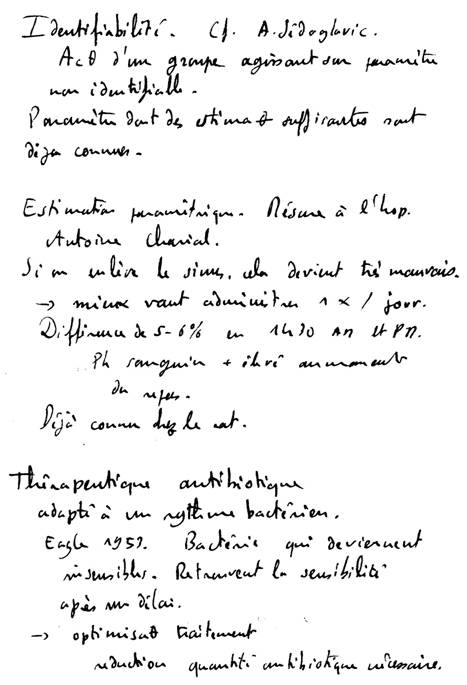 Identifiabilité. Cf. A. Sedoglavic.
Act° d'un groupe agissant sur paramètre
non identifiable.
Paramètre dont des estimat° suffisantes sont
déjà connues.
Estimation paramétrique. Mesure à l'hop.
Antoine Charial.
Si on enlève le sinus, cela devient très mauvais.
→ mieux vaut administrer 1 x / jour.
Différence de 5-6% en 1h30 AM et PM.
Ph sanguin + au moment
du repas.
Déjà connu chez le rat.
Thérapeutique antibiotique
adapté à un rythme bactérien.
Eagle 1959. Bactérie qui deviennent
insensibles. Retrouvent la sensibilité
après un délai.
→ optimisat° traitement
réduction quantité antibiotique nécessaire.